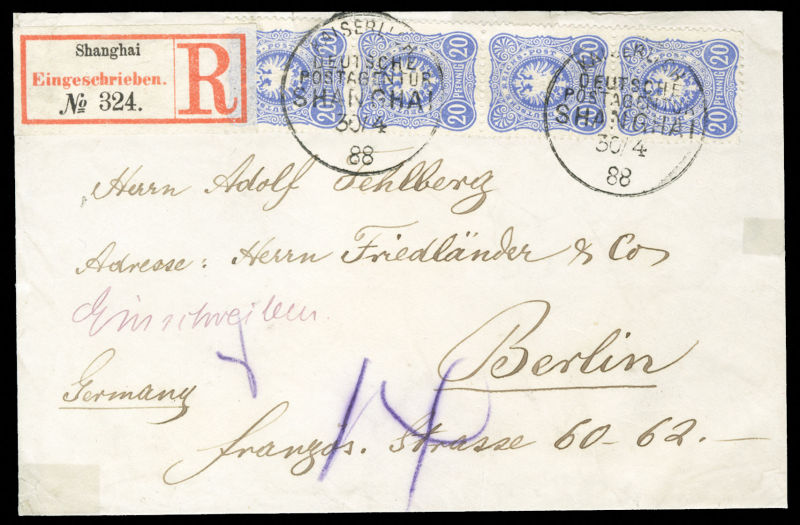 Shanghai
Eingeschrieben.
№ 324.
R
20 PFENNIG 20 PFENNIG 20 PFENNIG 20 PFENNIG
KAISERLICH
DEUTSCHE
POSTAGENTUR
SHANGHAI
30/4
88
KAISERLICH
DEUTSCHE
POSTAGENTUR
SHANGHAI
30/4
88
Herrn Adolf Fehlberg
Adresse: Herrn Friedländer & Co
Einschreiben.
Berlin
Germany
14
französ. Strasse 60-62.-